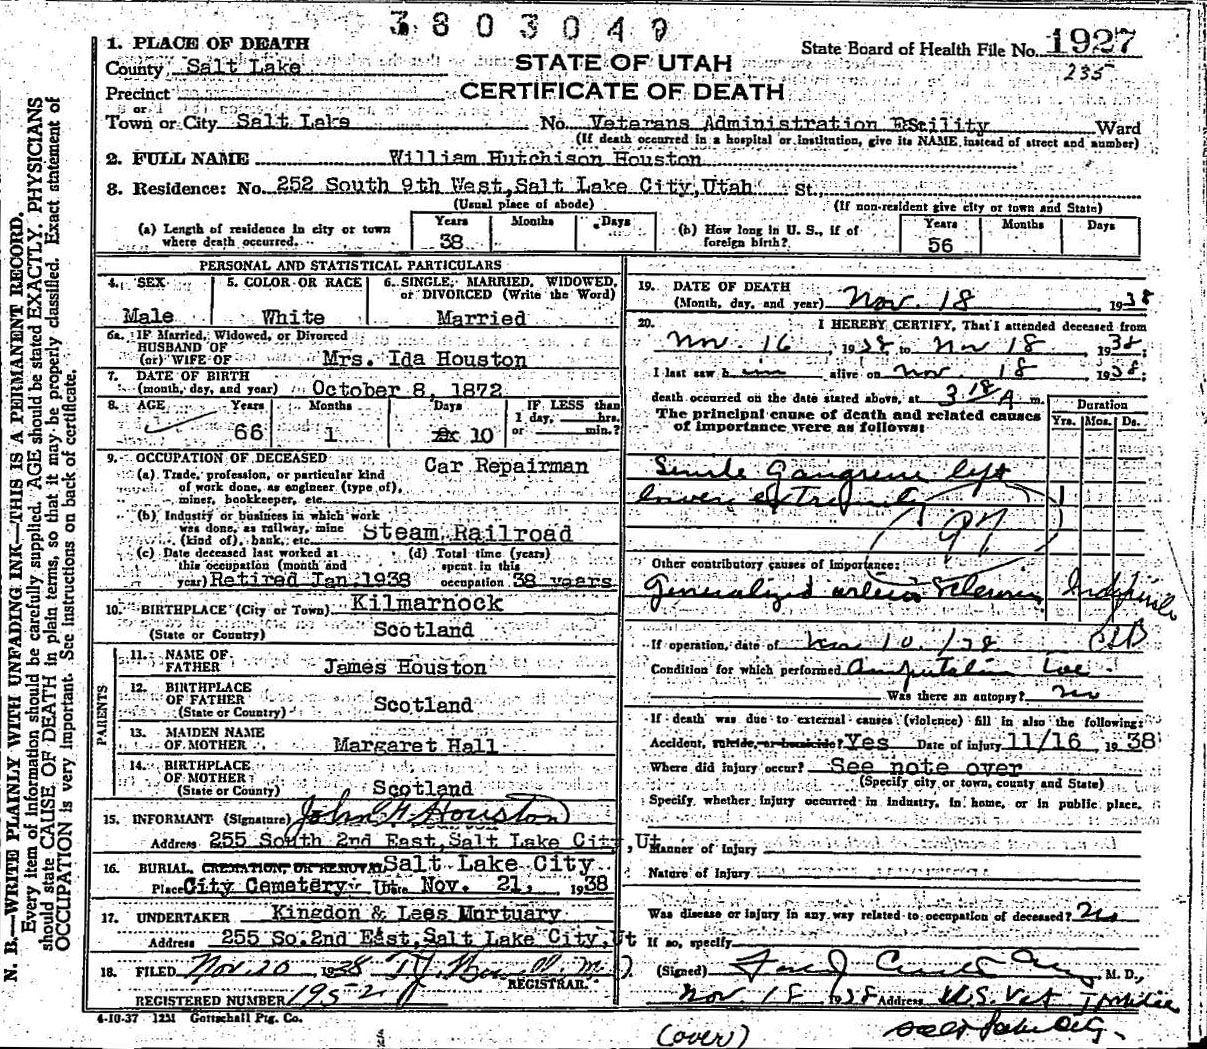 3803049
State Board of Health File No. 1927
235
STATE OF UTAH
CERTIFICATE OF DEATH
1. PLACE OF DEATH
County Salt Lake
Precinct
or
Town or City Salt Lake No. Veterans Administration Ward
(If death occurred in a hospital or institution, give its NAME instead of street and number)
2. FULL NAME William Hutchison Houston
3. Residence: No. 252 South 9th West, Salt Lake City, Utah St.
(Usual place of abode) (If non-resident give city or town and State)
(a) Length of residence in city or town where death occurred. Years 38 Months Days
(b) How long in U. S., if of foreign birth? Years 56 Months Days
PERSONAL AND STATISTICAL PARTICULARS
4. SEX Male
5. COLOR OR RACE White
6. SINGLE, MARRIED, WIDOWED, or DIVORCED (Write the Word) Married
6a. IF Married, Widowed, or Divorced
HUSBAND OF
(or) WIFE OF Mrs. Ida Houston
7. DATE OF BIRTH
(month, day, and year) October 8, 1872
8. AGE Years 66 Months 1 Days 10 IF LESS than 1 day, hrs. or min.?
9. OCCUPATION OF DECEASED Car Repairman
(a) Trade, profession, or particular kind
of work done, as engineer (type of),
miner, bookkeeper, etc.
(b) Industry or business in which work
was done, as railway, mine
(kind of), bank, etc. Steam Railroad
(c) Date deceased last worked at
this occupation (month and
year) Retired Jan. 1938
(d) Total time (years)
spent in this
occupation 38 years
10. BIRTHPLACE (City or Town) Kilmarnock
(State or Country) Scotland
PARENTS
11. NAME OF
FATHER James Houston
12. BIRTHPLACE
OF FATHER
(State or Country) Scotland
13. MAIDEN NAME
OF MOTHER Margaret Hall
14. BIRTHPLACE
OF MOTHER
(State or Country) Scotland
15. INFORMANT (Signature) John Houston
Address 255 South 2nd East, Salt Lake City, Ut
16. BURIAL, CREMATION, OR REMOVAL Salt Lake City
Place City Cemetery Date Nov. 21, 1938
17. UNDERTAKER Kingdon & Lees Mortuary
Address 255 So. 2nd East, Salt Lake City, Ut
18. FILED Nov. 20 1938
REGISTRAR.
REGISTERED NUMBER 1952
4-10-37 12M Gottschall Ptg. Co.
19. DATE OF DEATH
(Month, day, and year) Nov. 18 1938
20. I HEREBY CERTIFY, That I attended deceased from
Nov. 16, 1938 to Nov 18, 1938;
I last saw him alive on Nov. 18 1938;
death occurred on the date stated above, at 3 18 A m.
The principal cause of death and related causes
of importance were as follows:
Duration
Yrs. Mos. Ds.
Senile Gangrene left
lower extremity
97
Other contributory causes of importance:
Generalized arterio Sclerosis
If operation, date of 10/38
Condition for which performed Amputation Toe
Was there an autopsy? no
If death was due to external causes (violence) fill in also the following:
Accident, suicide, or homicide? Yes Date of injury 11/16, 1938
Where did injury occur? See note over
(Specify city or town, county and State)
Specify whether injury occurred in industry, in home, or in public place.
Manner of Injury
Nature of Injury
Was disease or injury in any way related to occupation of deceased? No
If so, specify
(Signed) M. D.,
Nov. 18 1938 Address U.S. Vet
Salt Lake City.
(over)
N. B.—WRITE PLAINLY WITH UNFADING INK—THIS IS A PERMANENT RECORD.
Every item of information should be carefully supplied. AGE should be stated EXACTLY. PHYSICIANS
should state CAUSE OF DEATH in plain terms, so that it may be properly classified. Exact statement of
OCCUPATION is very important. See instructions on back of certificate.